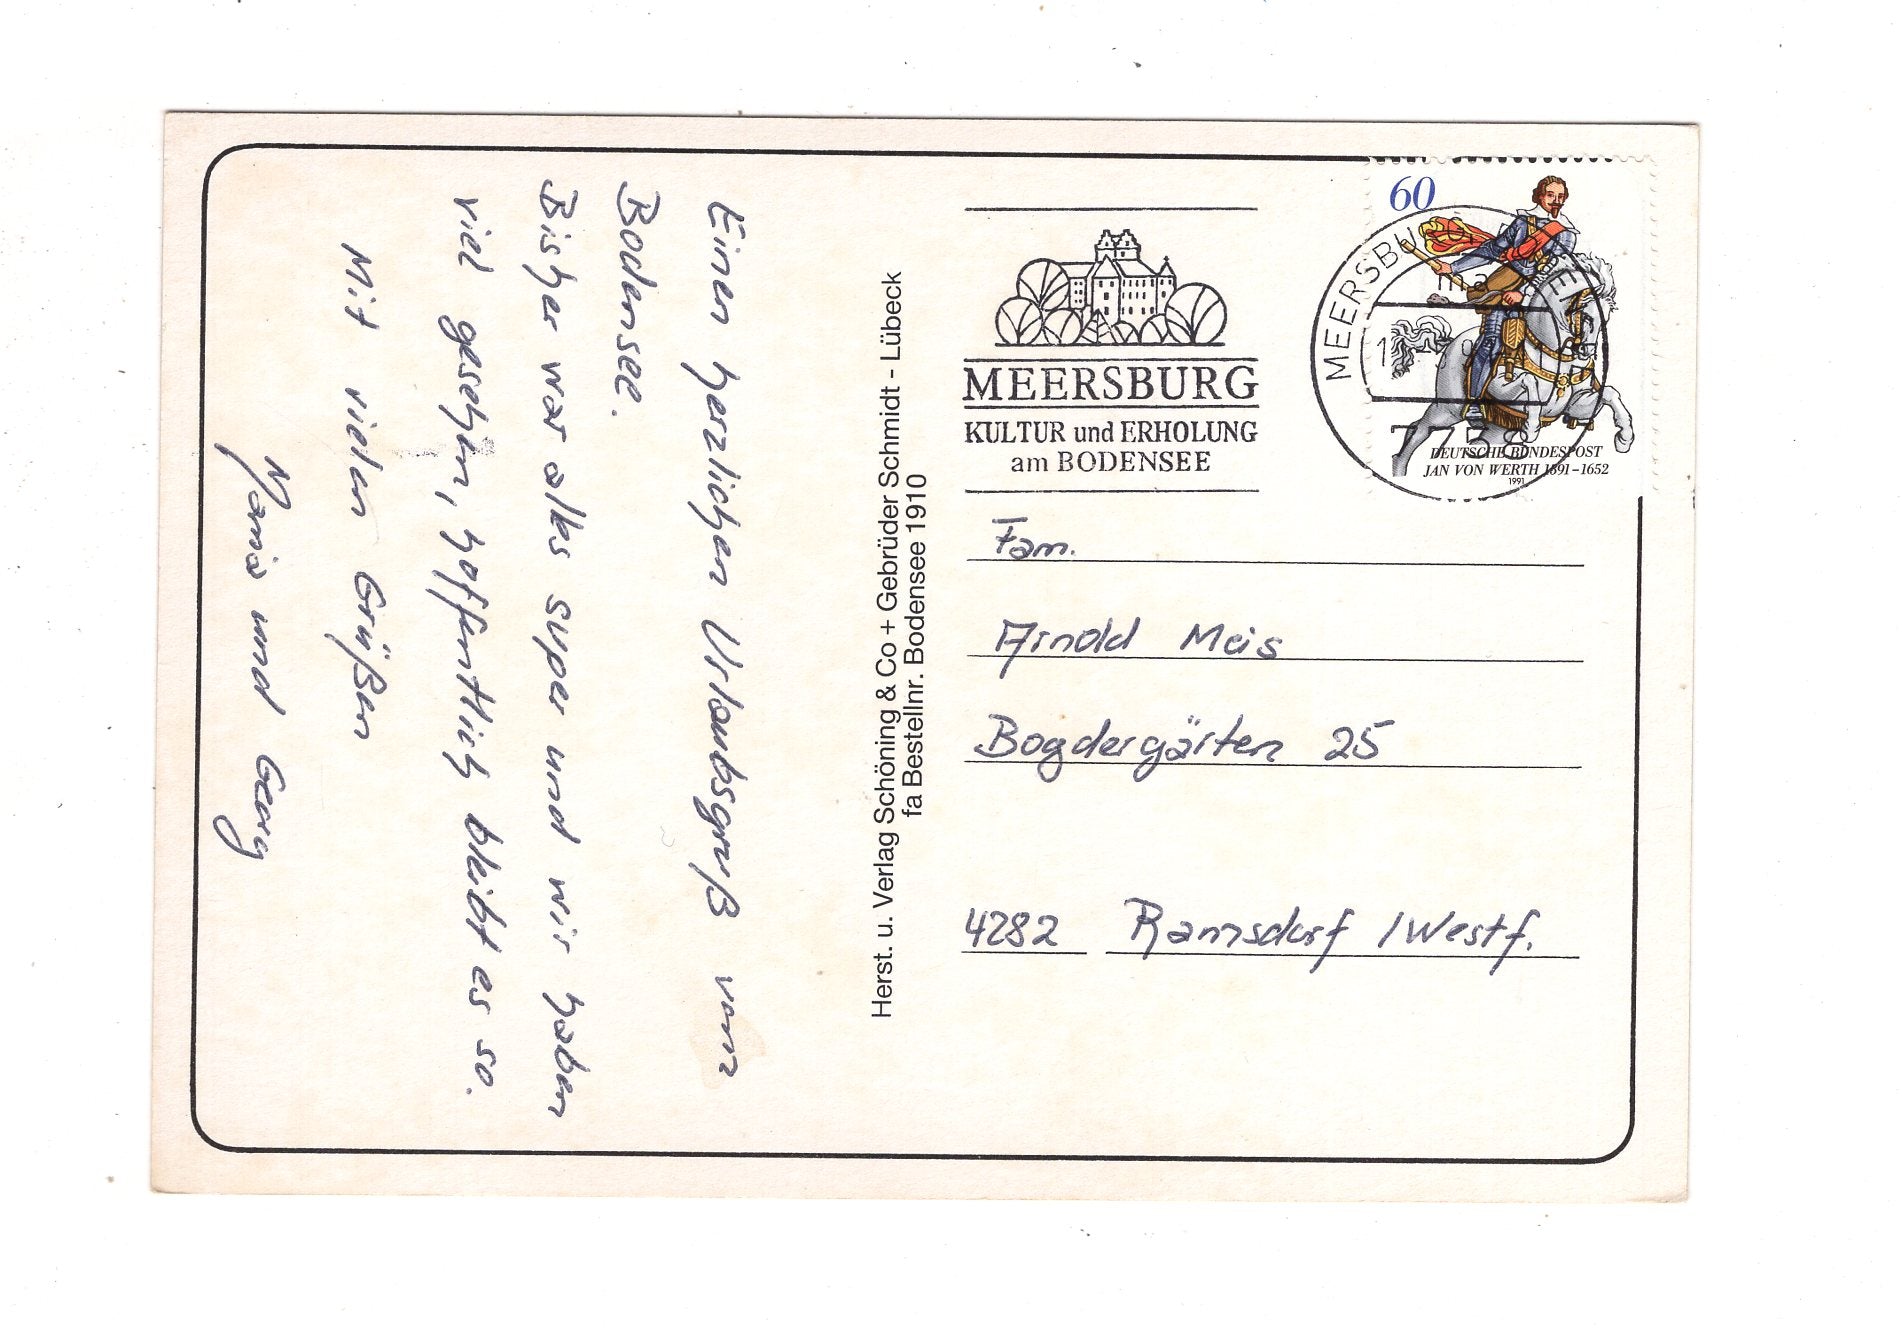 Einen herzlichen Urlaubsgruß vom
Bodensee.
Bisher war alles super und wir haben
viel gesehen, hoffentlich bleibt es so.
Mit vielen Grüßen
Maria und Georg
Herst. u. Verlag Schöning & Co + Gebrüder Schmidt - Lübeck
fa Bestellnr. Bodensee 1910
MEERSBURG
KULTUR und ERHOLUNG
am BODENSEE
60
MEERSBURG
7758
DEUTSCHE BUNDESPOST
JAN VON WERTH 1591–1652
1991
Fam.
Arnold Meis
Bogdergärten 25
4282 Ramsdorf /Westf.